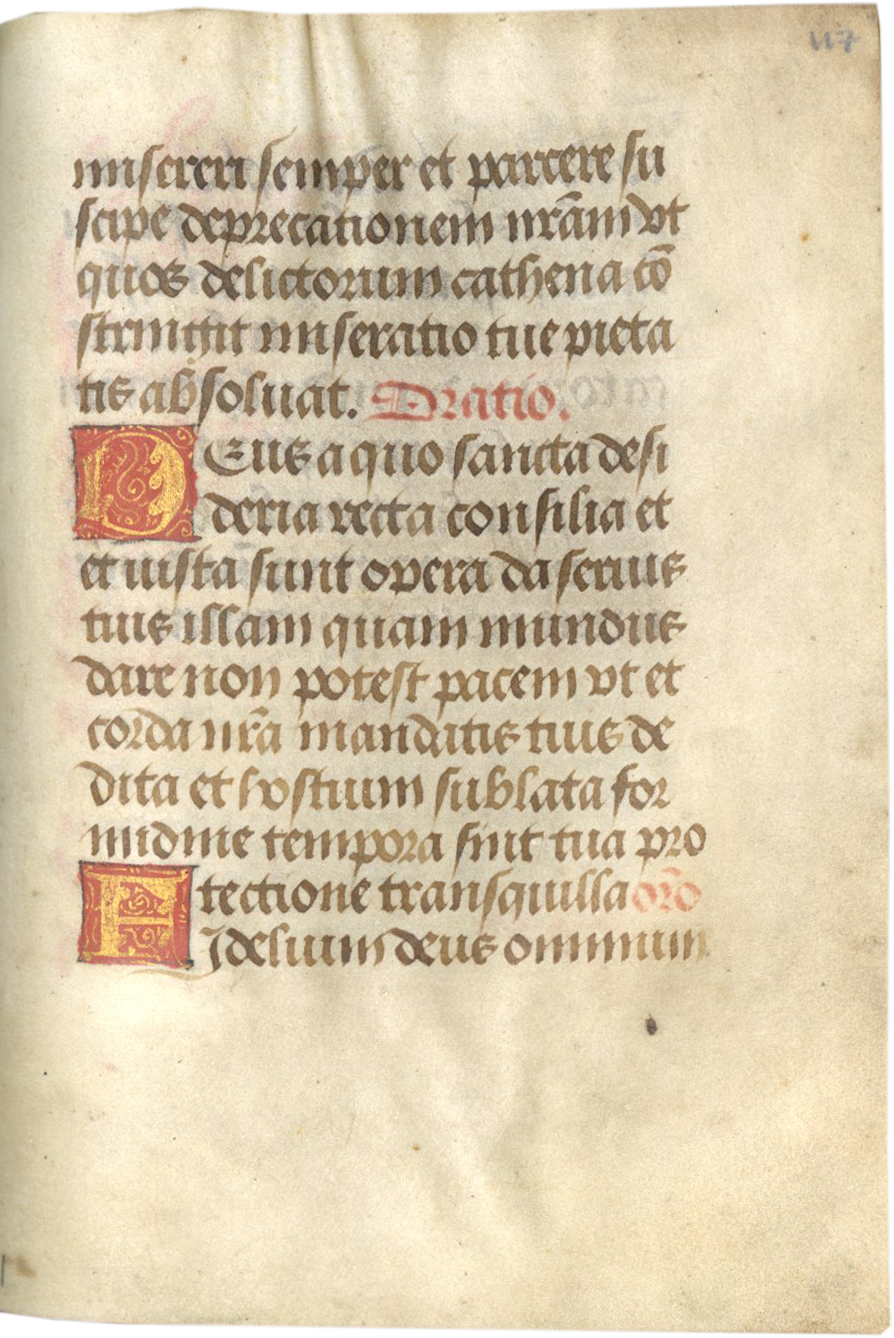 117
misereri semper et parcere su
scipe deprecationem nr̃am vt
quos delictorum cathena cõ
stringit miseratio tue pieta
tis absoluat. Oratio.
DEus a quo sancta desi
deria recta consilia et
et iusta sunt opera da seruis
tuis illam quam mundus
dare non potest pacem vt et
corda nr̃a mandatis tuis de
dita et hostium sublata for
midine tempora sint tua pro
tectione transquilla orõ
FIdelium deus omnium